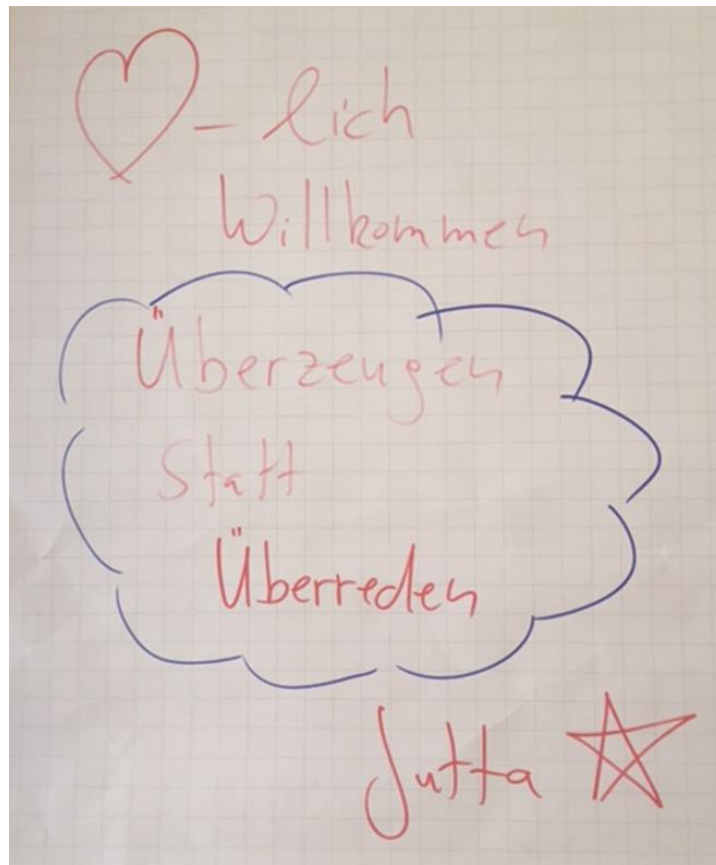 - lich
Willkommen
Überzeugen
Statt
Überreden
Jutta